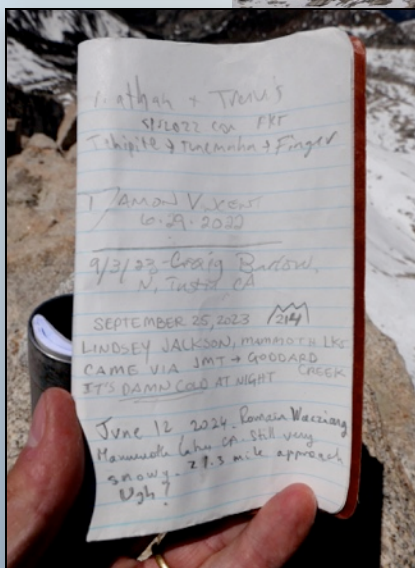 Nathan & Travis
5/5/2022 FKT
Tehipite → Tunemaha → Finger
DAMON VINCENT
6-29-2022
9/3/23 - Craig Barlow,
N. Tustin CA
SEPTEMBER 25, 2023 214
LINDSEY JACKSON, MAMMOTH LKS
CAME VIA JMT → GODDARD
CREEK
IT'S DAMN COLD AT NIGHT
June 12 2024. Romain Wacziarg
Mammoth Lakes CA. Still very
snowy. 27.5 mile approach
Ugh!